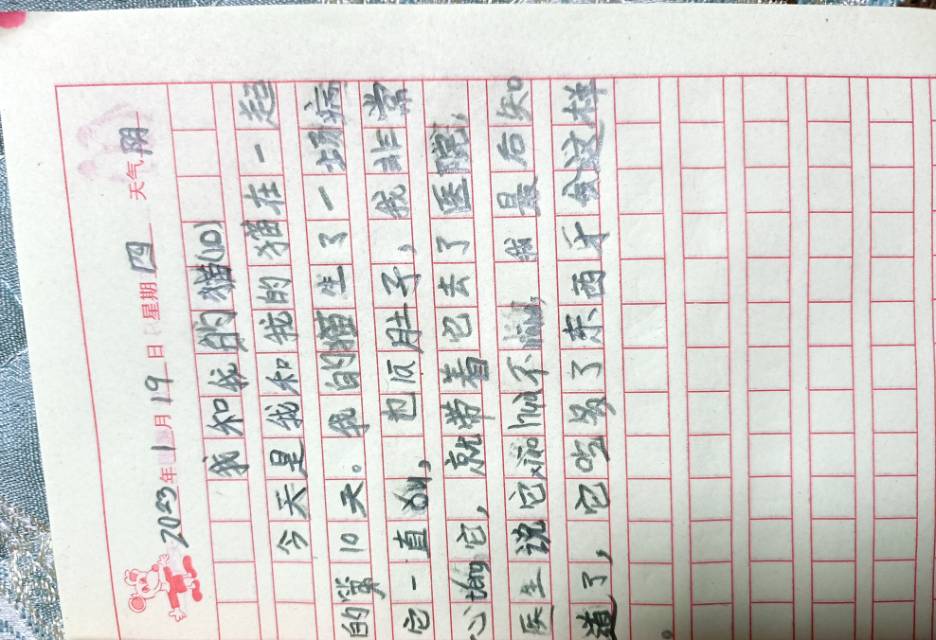 2023年1月19日 星期四 天气阴
我和我的猫(10)
今天是我和我的猫在一起
的第10天。我的猫生了一场病
它一直ǒu,也反肚子,我非常
心téng它,就带着它去了医院,
医生说它xiāo huà不 最后知
道了,它吃多了东西才会这样
。